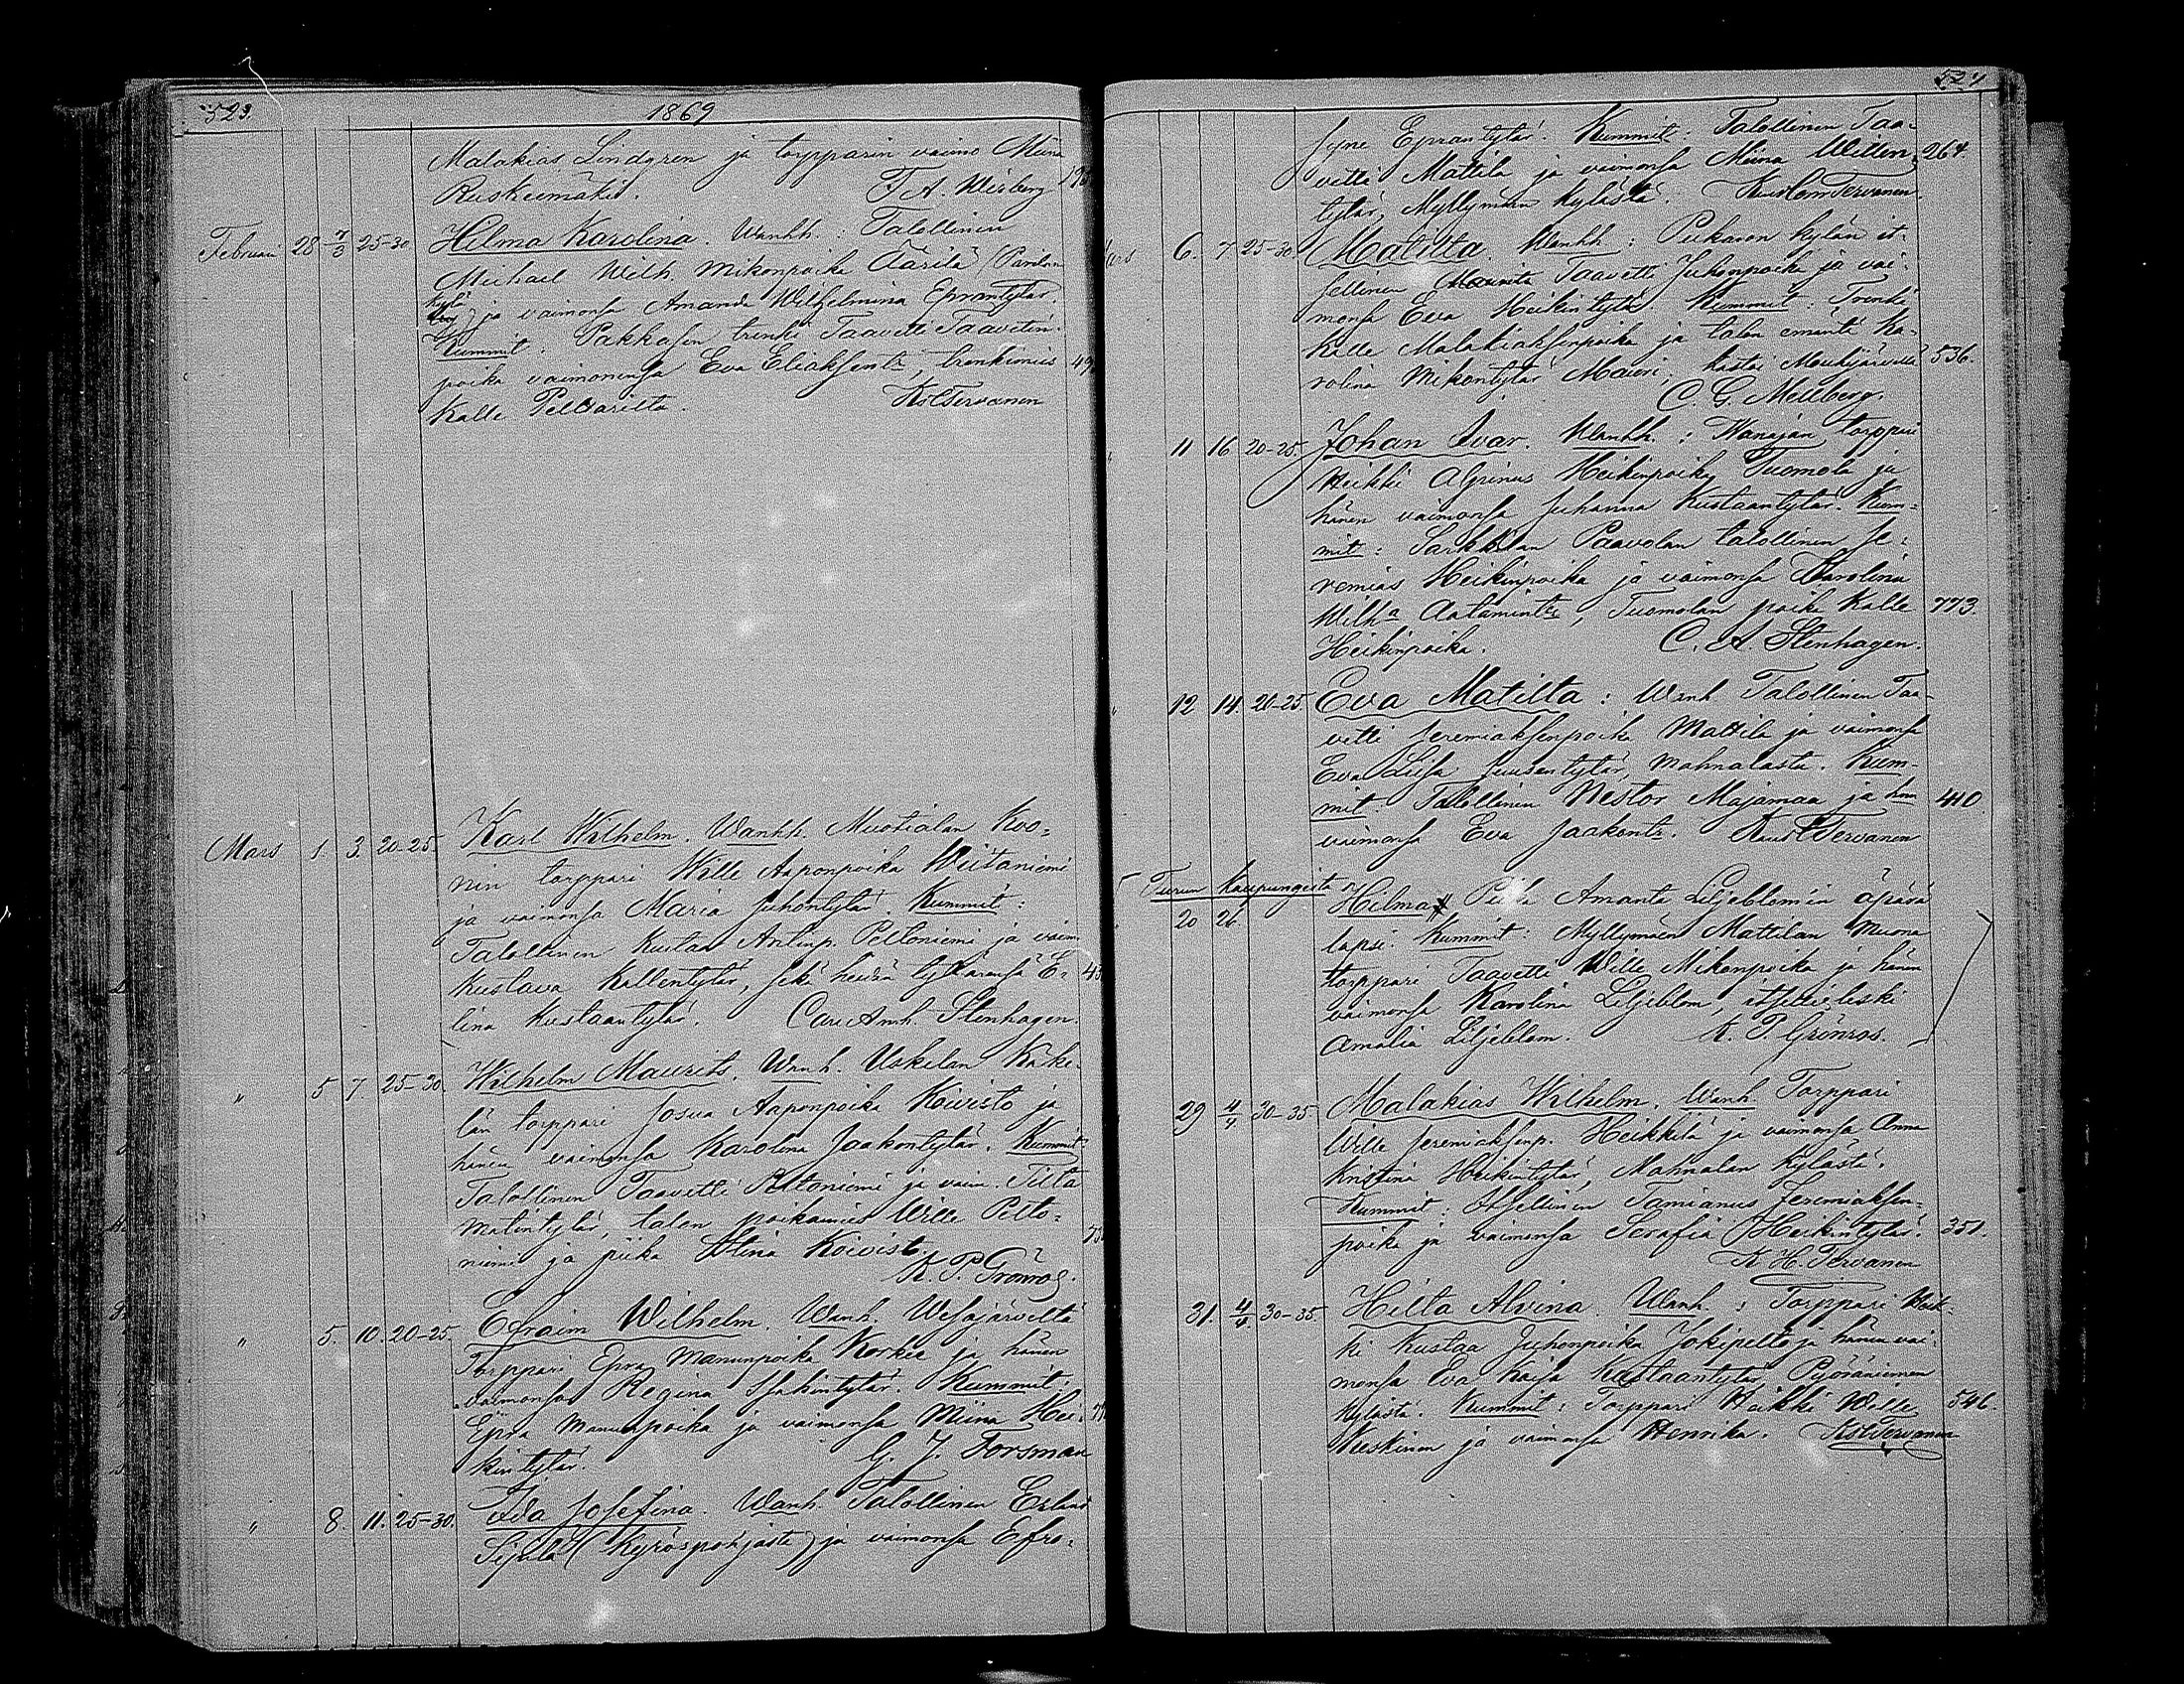 523. 1869
Malakias Lindgren ja torpparin vaimo Miina
Ruskeemäki. F. A. Wirberg
Februari 28 7/3 25-30 Hilma Karolina. Wanhh: Talollinen
Michael Wilh. Mikonpoika Äärilä (Parilan
kylä) ja vaimonsa Amanda Wilhelmina Eprantytär.
Kummit: Pakkasen trenki Taavetti Taavetin-
poika vaimonensa Eva Eliaksent:, trenkimies 49
Kalle Peltarilta. KstTervanen
Mars 1. 3. 20-25 Karl Wilhelm. Wanhh. Muotialan Koo-
nin torppari Wille Aaponpoika Wiitaniemi
ja vaimonsa Maria Juhontytär. Kummit:
Talollinen Kustaa Antinp. Peltoniemi ja vaim.
Kustava Kallentytär, sekä heidän tyttärensä E-
lina Kustaantytär. Carl Amh. Stenhagen.
" 5 7 25-30. Wilhelm Maurits. Wanh. Uskelan Käke-
län torppari Josua Aaponpoika Koivisto ja
hänen vaimonsa Karolina Jaakontytär. Kummit:
Talollinen Taavetti Peltoniemi ja vaim. Tilta
Matintytär, talon poikamies Wille Pelto-
niemi ja piika Stina Koivisto. K. P. Grönros.
" 5. 10. 20-25. Efraim Wilhelm. Wanh. Wesajärveltä
Torppari Epra Manunpoika Korkee ja hänen
vaimonsa Regina Isakintytär. Kummit:
Epra Manunpoika ja vaimonsa Miina Hei-
kintytär. G. J. Forsman
" 8. 11. 25-30. Ida Josefina. Wanh. Talollinen Erland
Sipilä (Kyröspohjasta) ja vaimonsa Efro-
524
syne Eprantytär. Kummit: Talollinen Taa-
vetti Mattila ja vaimonsa Miina Willen- 264.
tytär, Myllymäen kylästä. Tervanen
Mars 6. 7. 25-30. Matilta. Wanhh: Pukaron kylän it-
sellinen Taavetti Juhonpoika ja vai-
monsa Eva Heikintytär. Kummit: Trenki
Kalle Malakiaksenpoika ja talon emäntä Ka-
rolina Mikontytär Mauri; kastoi Mouhijärvellä 536.
C. G. Mellberg.
" 11 16 20-25. Johan Ivar. Wanhh.: Wanajan torppari
Heikki Alfrinus Heikinpoika Tuomola ja
hänen vaimonsa Juhanna Kustaantytär. Kum-
mit: Sarkkilan Paavolan talollinen Je-
remias Heikinpoika ja vaimonsa Karolina
Wilh:a Aatamint:, Tuomolan poika Kalle 773.
Heikinpoika. C. A. Stenhagen.
" 12 14. 20-25. Eva Matilta: Wanh. Talollinen Taa-
vetti Jeremiaksenpoika Mattila ja vaimonsa
Eva Liisa Juusentytär, Mahnalasta. Kum-
mit. Talollinen Nestor Majamaa ja hän 410
vaimonsa Eva Jaakont:. Tervanen
Turun kaupungista
20 26. Hilma, Piika Amanta Liljeblomin äpärä
lapsi. Kummit: Myllymäen Mattilan muona
torppari Taavetti Wille Mikonpoika ja hänen
vaimonsa Karolina Liljeblom, itsellis leski
Amalia Liljeblom. K. P. Grönros.
29 4/4 30-35 Malakias Wilhelm. Wanh. Torppari
Wille Jeremiaksenp. Heikkilä ja vaimonsa Anna
Kristina Heikintytär, Mahnalan kylästä.
Kummit: Itsellinen Tamianus Jeremiaksen-
poika ja vaimonsa Serafia Heikintytär. 351.
K. H. Tervanen
31. 4/4. 30-35. Hilta Alvina. Wanh.: Torppari Heik-
ki Kustaa Juhonpoika Jokipelto ja hänen vai-
monsa Eva Kaisa Kustaantytär, Pyöräniemen
kylästä. Kummit: Torppari Heikki Wille 546.
Keskinen ja vaimonsa Henrika. KstTervanen